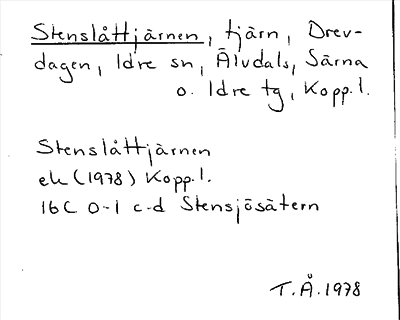 Stenslåttjärnen, tjärn, Drev-
dagen, Idre sn, Älvdals, Särna
o. Idre tg, Kopp. l.
Stenslåttjärnen
ek (1978) Kopp. l.
16C 0-1 c-d Stensjösätern
T.Å. 1978